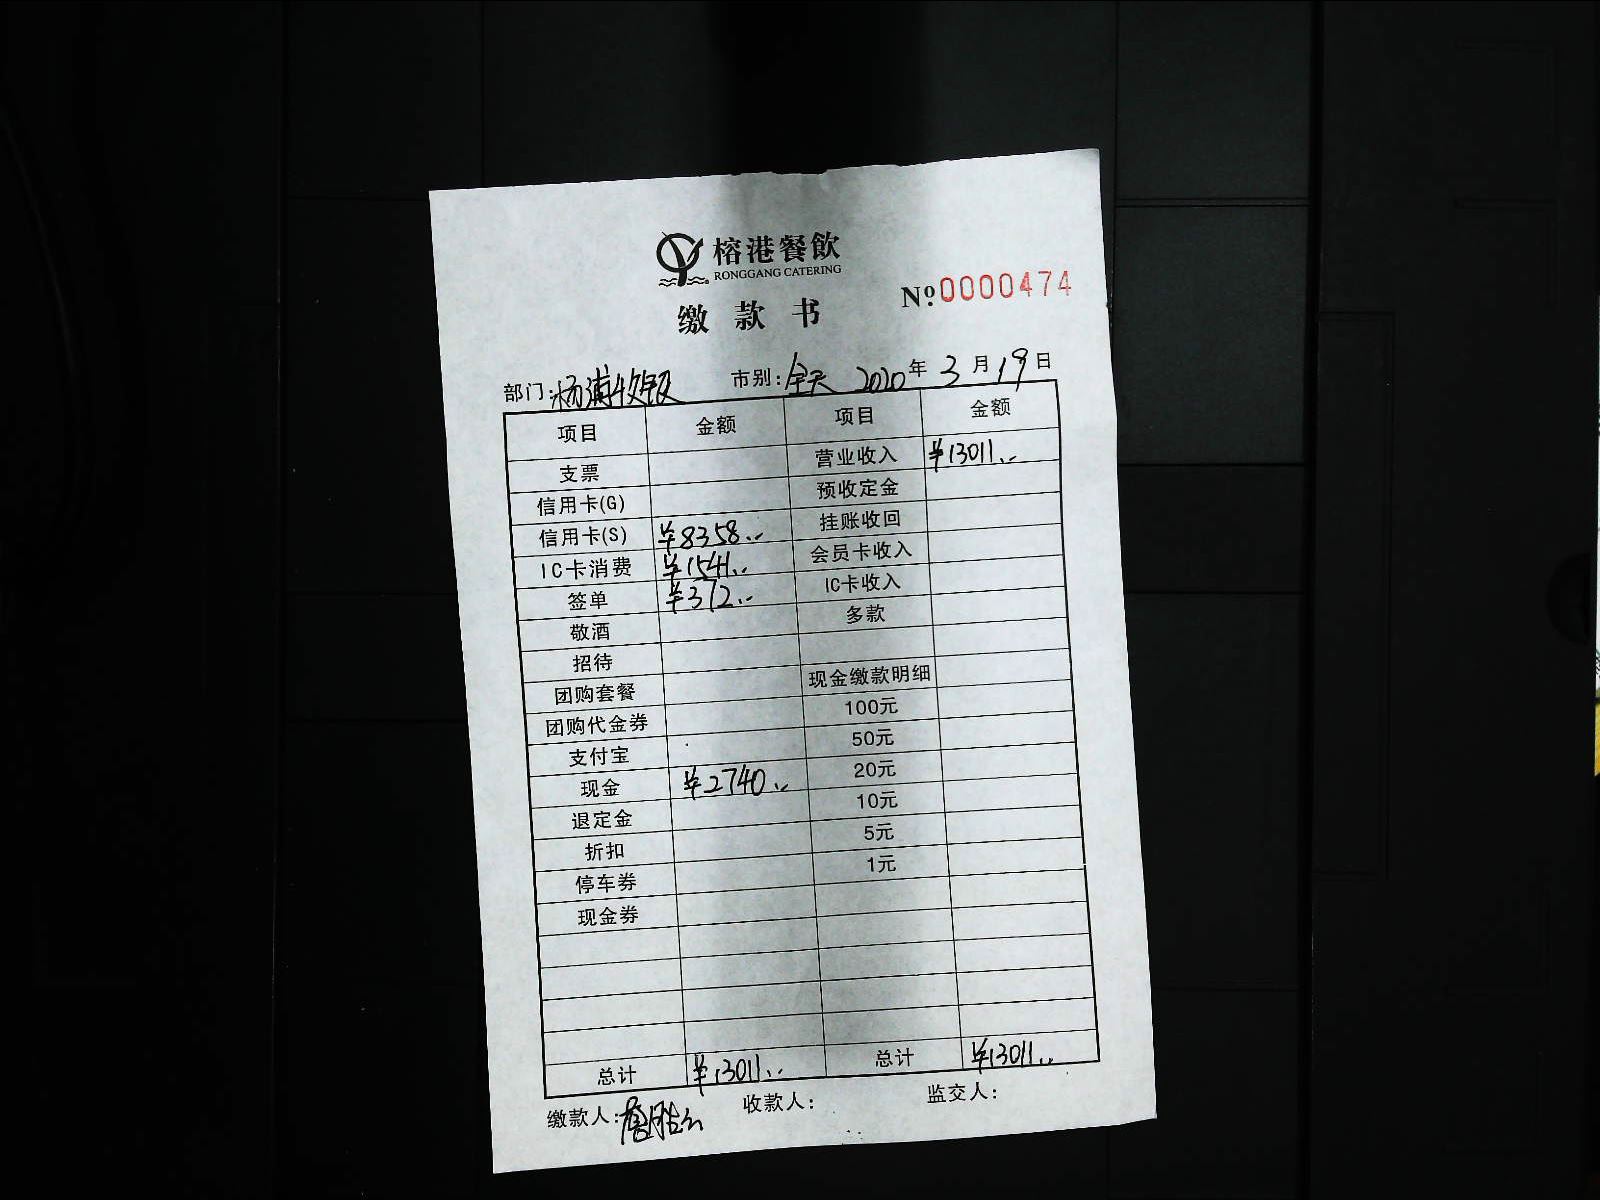 榕港餐飲
RONGGANG CATERING
缴款书
№0000474
部门：杨浦收银 市别：全天 2020年3月19日
项目 金额 项目 金额
支票 营业收入 ¥13011..
信用卡(G) 预收定金
信用卡(S) ¥8358.. 挂账收回
IC卡消费 ¥1541.. 会员卡收入
签单 ¥372.. IC卡收入
敬酒 多款
招待
团购套餐 现金缴款明细
团购代金券 100元
支付宝 50元
现金 ¥2740.. 20元
退定金 10元
折扣 5元
停车券 1元
现金券
总计 ¥13011.. 总计 ¥13011..
缴款人： 收款人： 监交人：